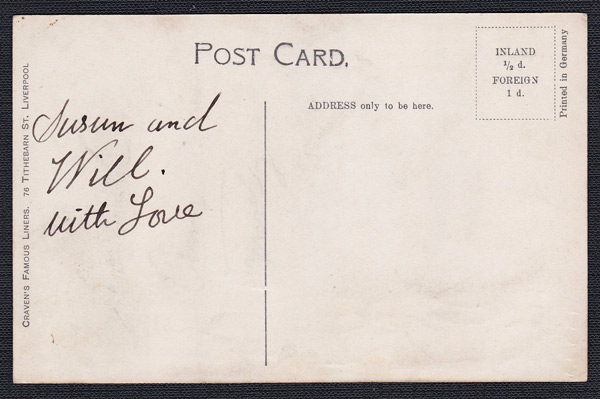 POST CARD.
INLAND
½ d.
FOREIGN
1 d.
Printed in Germany
ADDRESS only to be here.
CRAVEN'S FAMOUS LINERS. 76 TITHEBARN ST. LIVERPOOL
Susun and
Will.
with Love